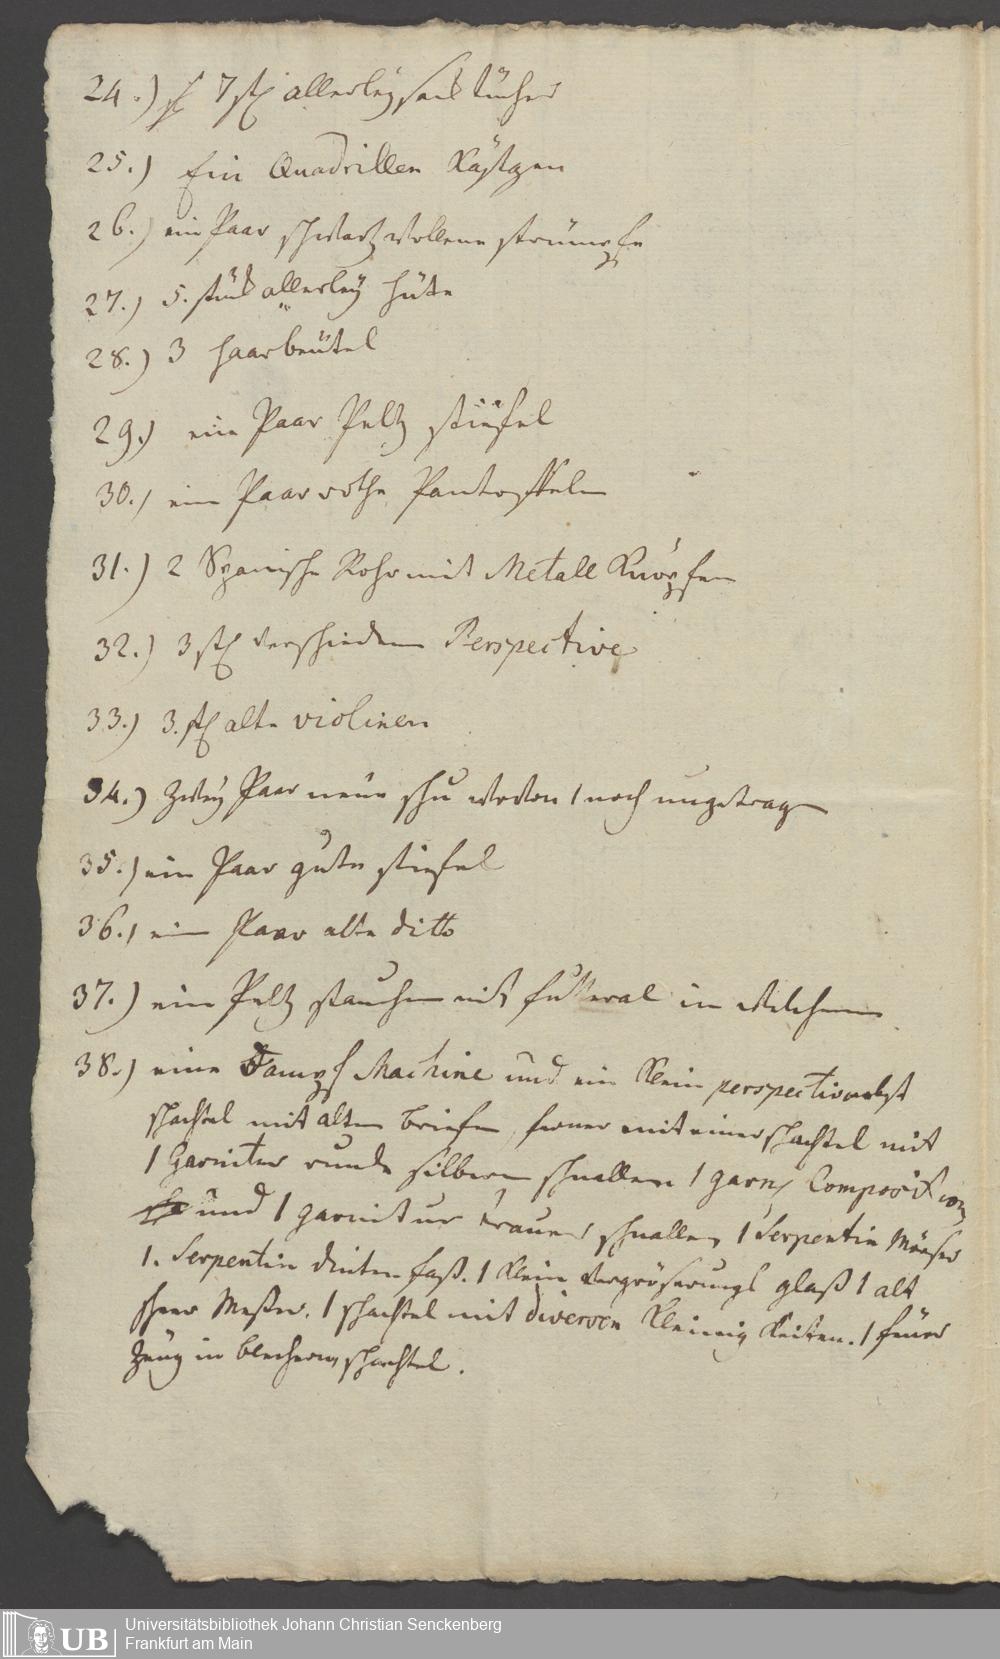 24.) 7 st allerley sack tücher
25.) Ein Quadrillen Kästgen
26.) ein Paar schwartz wollene strümpfe
27.) 5. stück allerley hüte
28.) 3 haarbeütel
29.) ein Paar Peltz stiefel
30.) ein Paar rothe Pantoffeln
31.) 2 Spanische Rohr mit Metall Knöpfen
32.) 3 st verschiedene Perspective
33.) 3. st alte violinen
34.) zwey Paar neüe schu wovon 1 noch ungetragen
35.) ein Paar gute stiefel
36.) ein Paar alte ditto
37.) ein Peltz stauchen mit futteral in welchem
38.) eine Dampf Machine und ein Klein perspectiv nebst
schachtel mit alten briefen, ferner mit einer schachtel mit
1 Garnitur runde silberne schnallen 1 garn Composition
und 1 garnitur trauer schnallen, 1 Serpentin Mörser
1. Serpentin dinten faß. 1 Klein vergröserungs glaß 1 alt
Messer. 1 schachtel mit diversen Kleinig Keiten. 1 feüer
Zeüg in blecherne schachtel.
Universitätsbibliothek Johann Christian Senckenberg
UB Frankfurt am Main